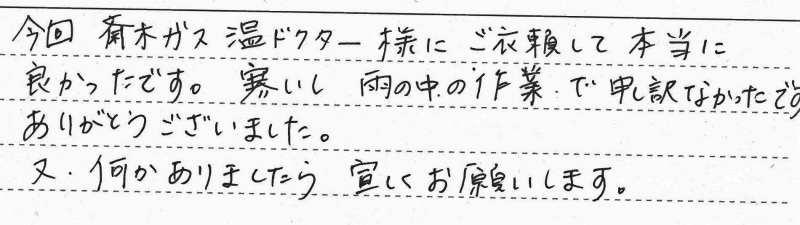 今回 斉木ガス 温ドクター様に ご衣頼して 本当に
良かったです。 寒いし 雨の中の作業で 申し訳なかったです
ありがとうございました。
又、何かありましたら 宜しくお願いします。